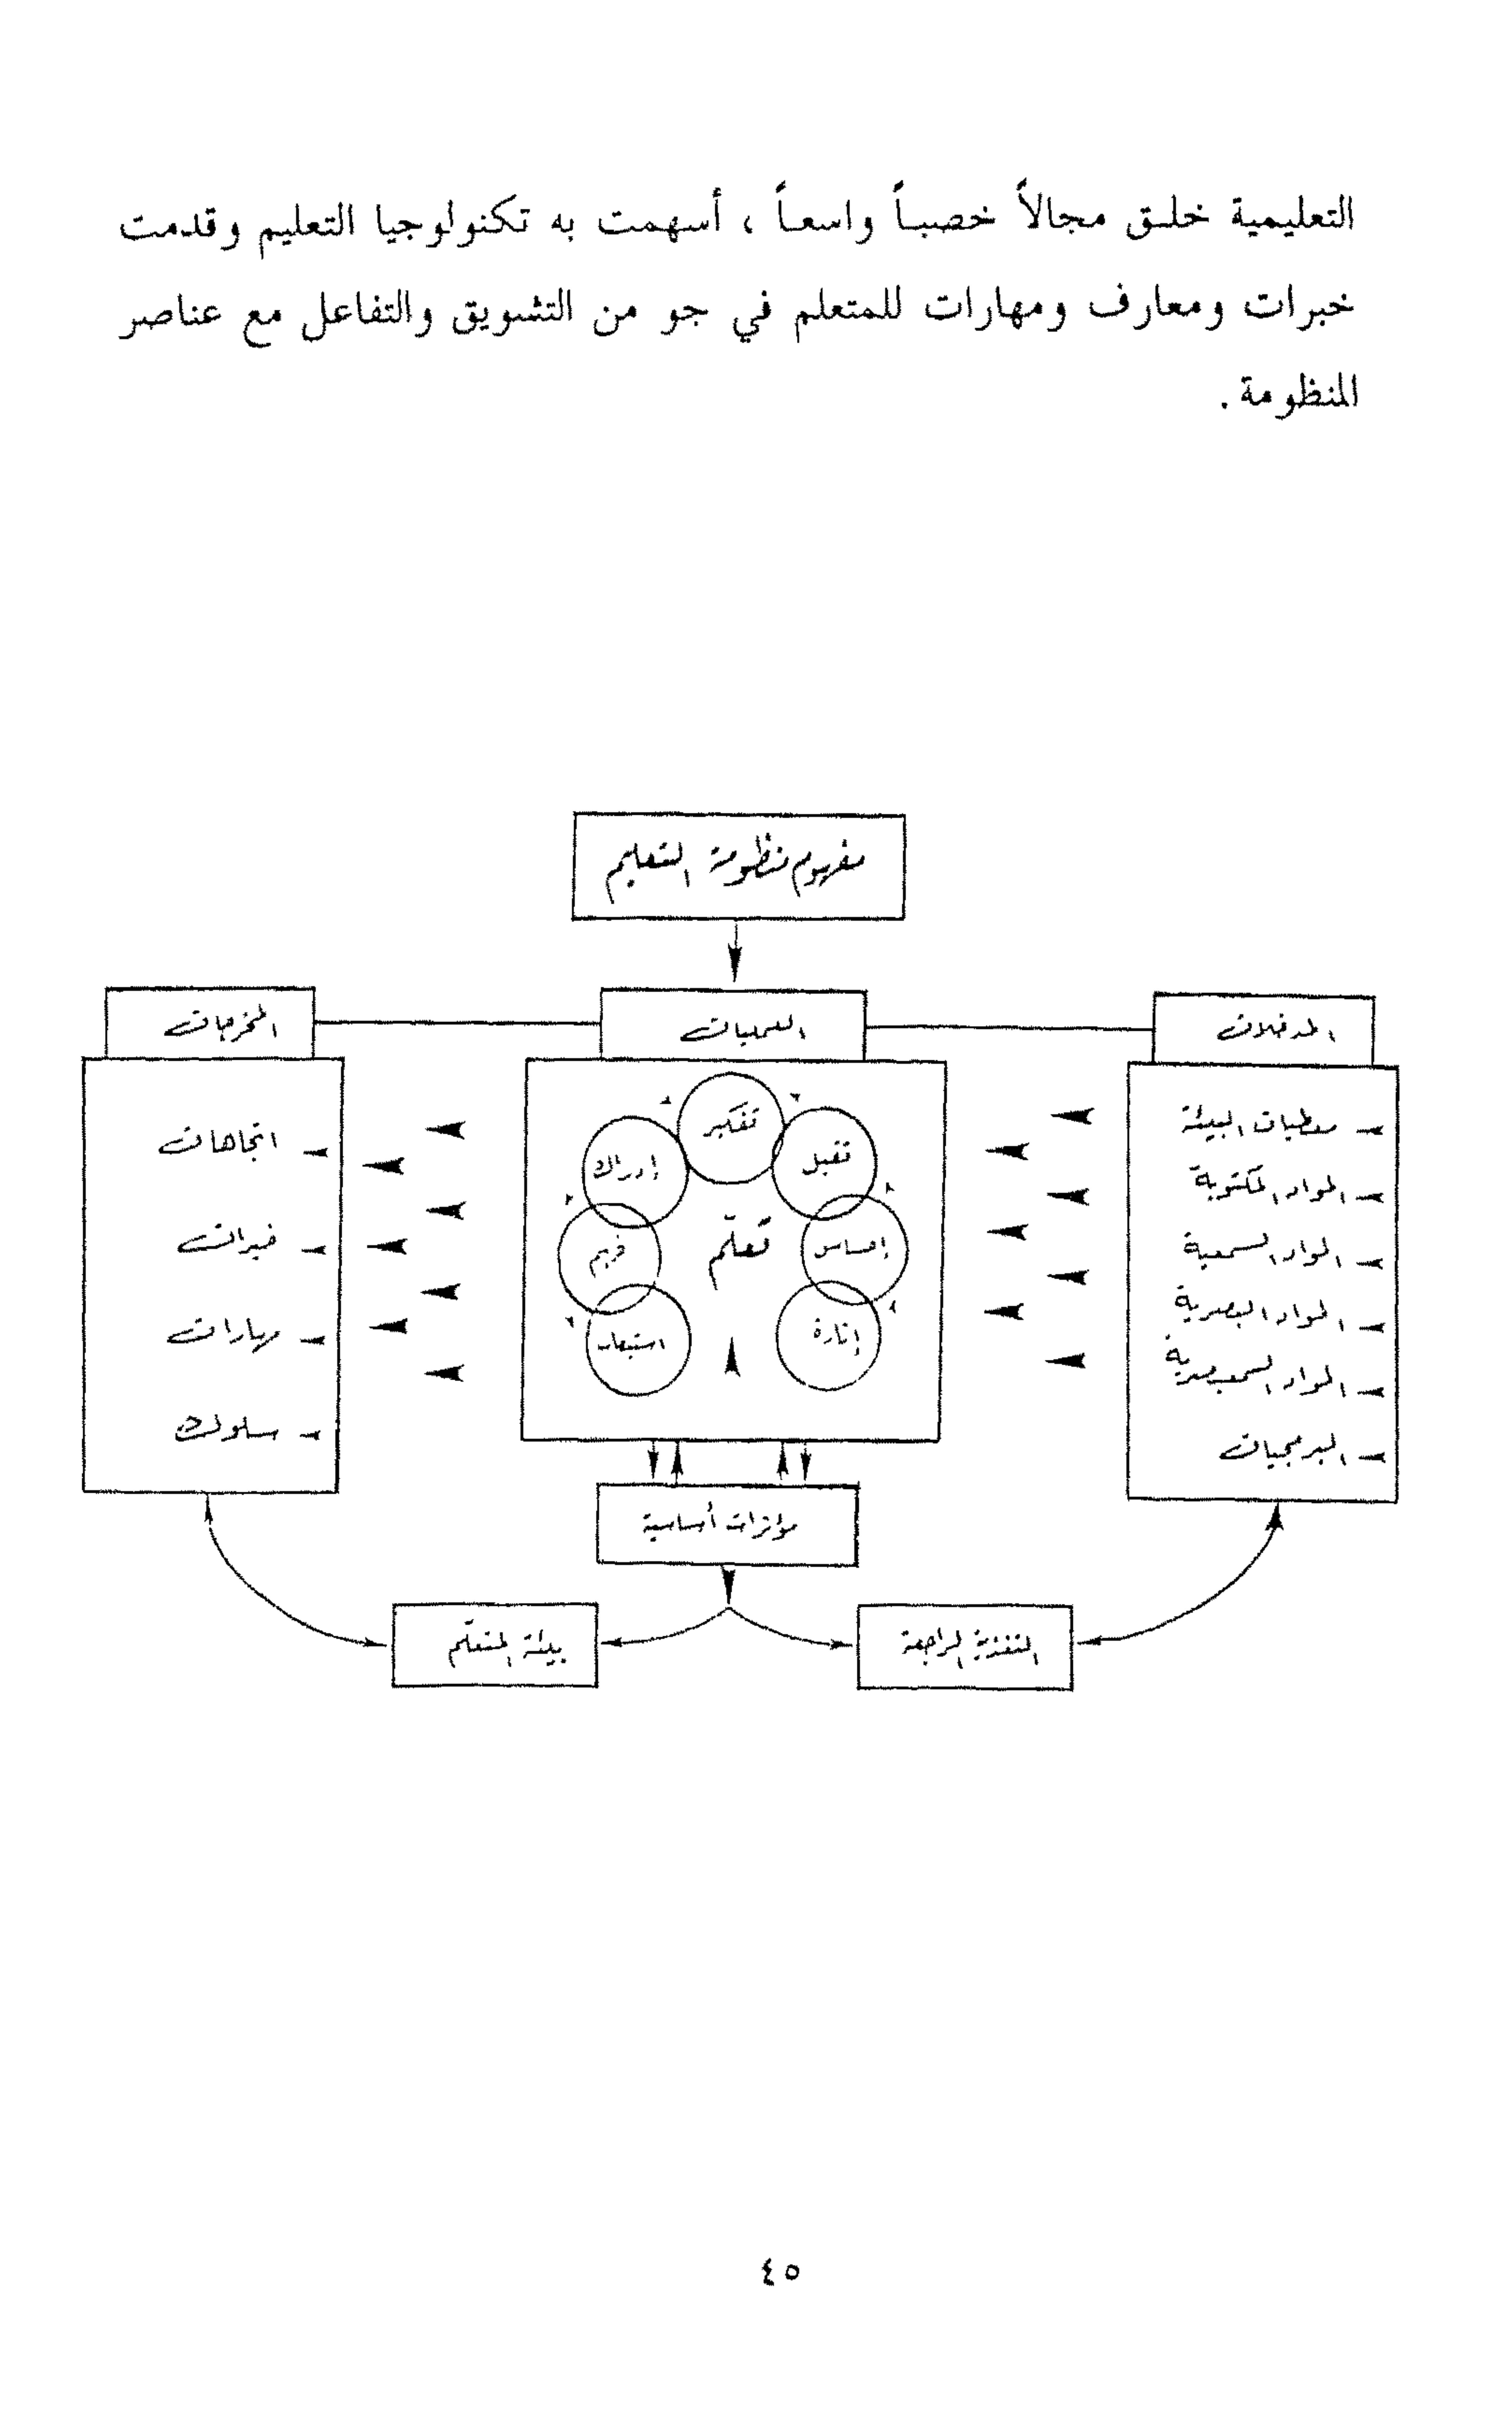 التعليمية خلـق مجالاً خصبـاً واسعـاً ، أسهمت به تكنولوجيا التعليم وقدمت
خبرات ومعارف ومهارات للمتعلم في جو من التشويق والتفاعل مع عناصر
المنظومة .
مفهوم منظومة التعليم
المدخلات
العمليات
المخرجات
معطيات البيئة
المواد المكتوبة
المواد السمعية
المواد البصرية
المواد السمعبصرية
البرمجيات
تفكير
تقبل
إدراك
إحساس
تعلّم
فهم
إثارة
استيعاب
اتجاهات
خبرات
مهارات
سلوك
مؤثرات أساسية
التغذية الراجعة
بيئة المتعلّم
٤٥